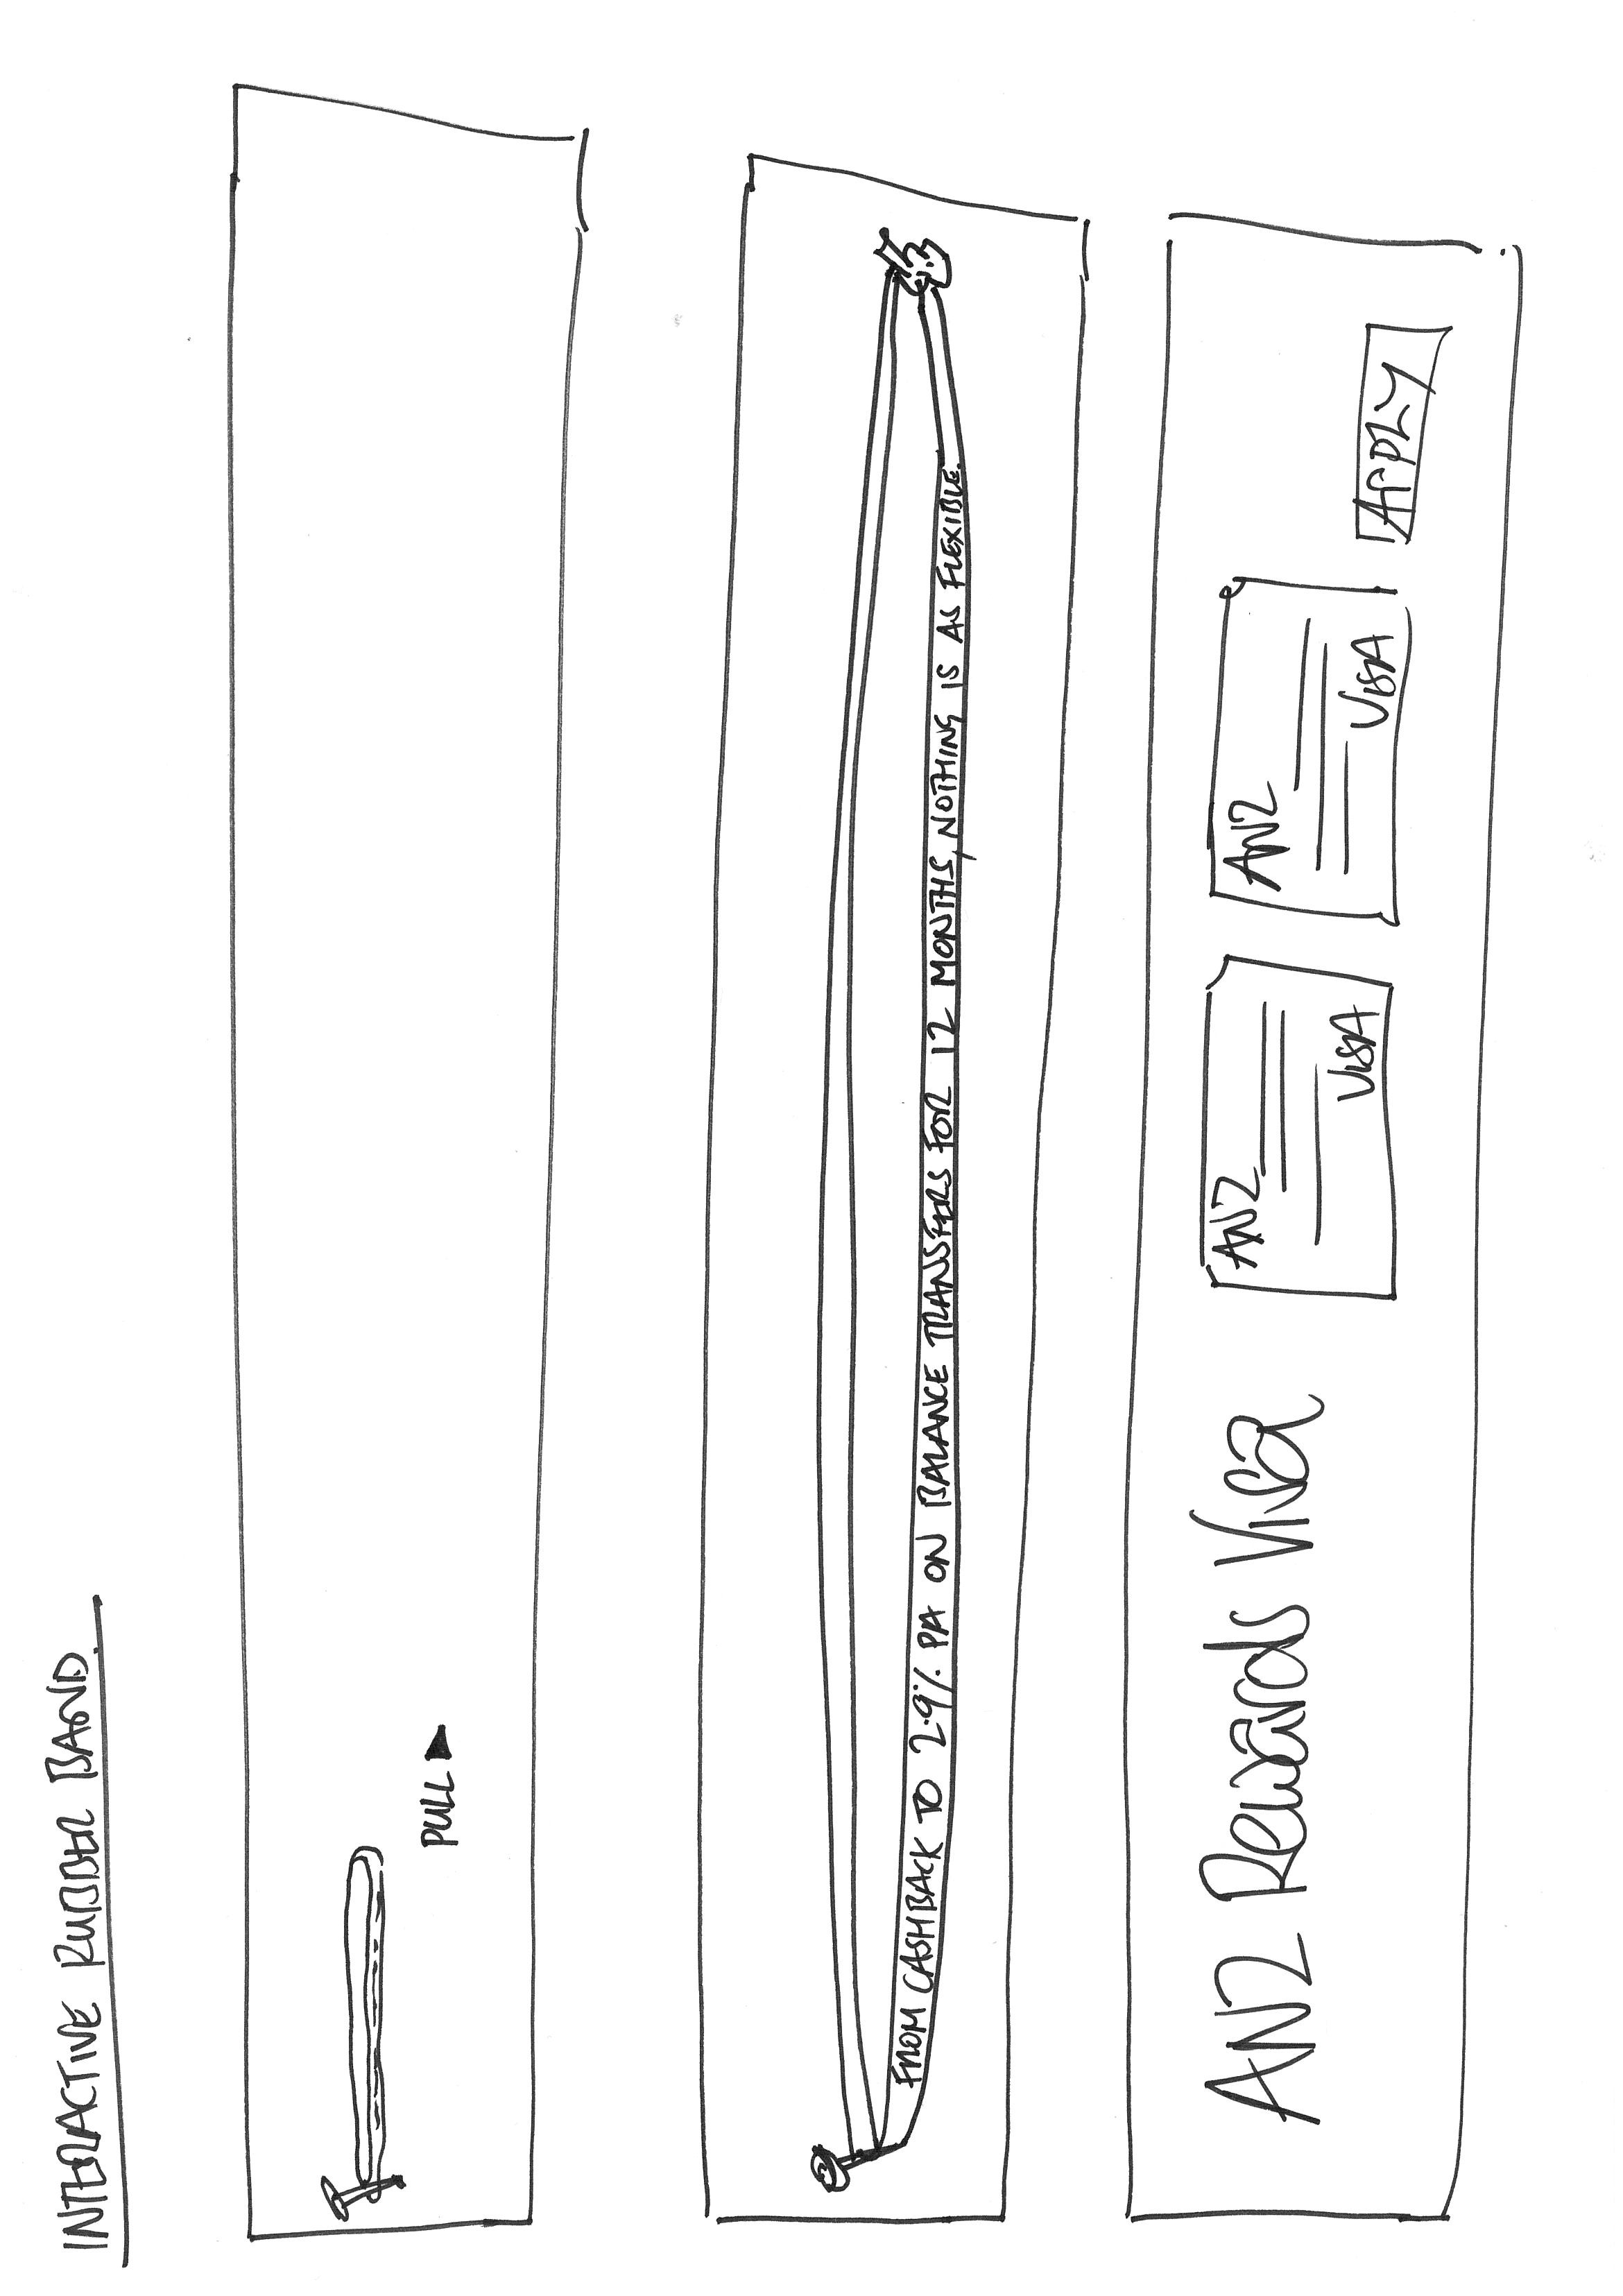 INTERACTIVE RUBBER BAND.
PULL ►
FROM CASHBACK TO 2.9% PA ON BALANCE TRANSFERS FOR 12 MONTHS, NOTHING IS AS FLEXIBLE.
ANZ Rewards Visa
ANZ
VISA
ANZ
VISA
APPLY